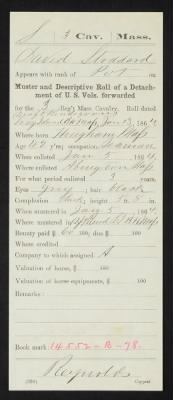 S 3 Cav. Mass.
David Stoddard
Appears with rank of Pvt. on
Muster and Descriptive Roll of a Detachment of U. S. Vols. forwarded
for the 3 Reg't Mass. Cavalry. Roll dated
186
Where born Hingham Mass
Age 42 y'rs; occupation Seaman
When enlisted Jan 5, 1864.
Where enlisted Abington Mass
For what period enlisted 3 years.
Eyes Gray; hair black
Complexion Dark; height ft. 5 in.
When mustered in Jan 5, 1864.
Where mustered in
Bounty paid $ 60 100; due $ 100
Where credited
Company to which assigned A
Valuation of horse, $ 100
Valuation of horse equipments, $ 100
Remarks:
Book mark: 14552-B-78.
Reynolds
Copyist.